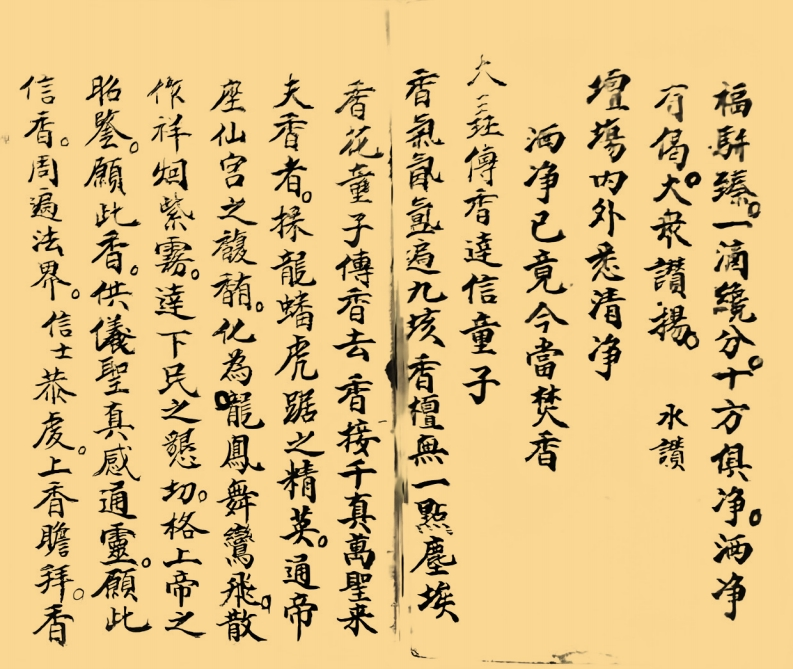 福駢臻。一滴纔分。十方俱净。洒净
有偈。大衆讚揚。 水讚
壇場内外悉清净
洒净已竟今當焚香
大三
傳香達信童子
香氣氤氳遍九垓香壇無一點塵埃
香花童子傳香去香接千真萬聖来
夫香者。採龍蟠虎踞之精英。通帝
座仙宫之馥郁。化為龍鳳舞鸞飛。散
作祥烟紫霧。達下民之懇切。格上帝之
昭鑒。願此香。供儀聖真感通靈。願此
信香。周遍法界。信士恭虔。上香瞻拜。香